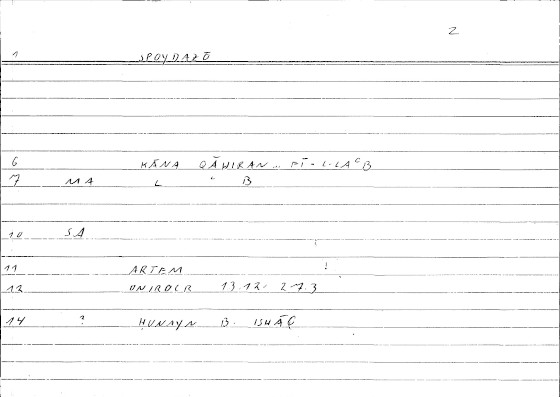 2
1 SPOYDAZŌ
6 KĀNA QĀHIRAN .. FĪ-L-LAᶜB
7 MA L ᶜ B
10 SA
11 ARTEM !
12 ONIROCR 13.12. 27.3
14 ? HUNAYN B. ISHĀQ